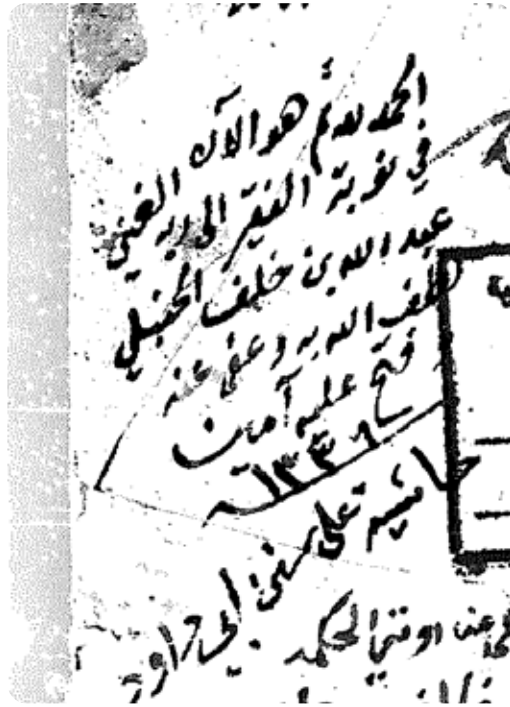 الحمد لله ثم هو الآن
في نوبة الفقير الى ربه الغني
عبد الله بن خلف الحنبلي
لطف الله به وعفى عنه
فتح عليه آمين
١٣٣٦
حاشيه على سنن ابي داود